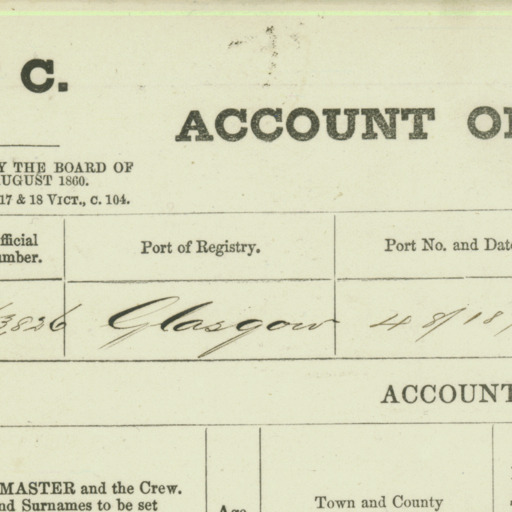 C.
ACCOUNT O
Y THE BOARD OF
AUGUST 1860.
17 & 18 VICT., C. 104.
fficial
umber.
Port of Registry.
Port No. and Date
3826
Glasgow
48/18
ACCOUNT
MASTER and the Crew.
nd Surnames to be set
Age
Town and County